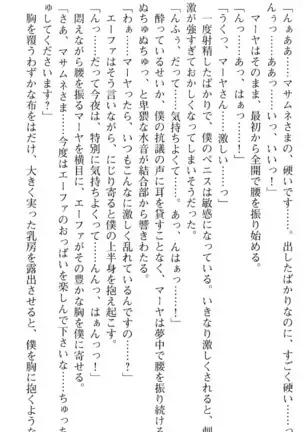 んぅっ……」
「んぁぁ……マサムネさまの、硬いです……。出したばかりなのに、すごく硬い…っ
　あっ、ああっ、い、いいっ…！」
　マーヤはそのまま、最初から全開で腰を振り始める。
「んっ、あっ、はぁっ…！」
「うくっ、マーヤさん、激しい……っ」
　一度射精したばかりで、僕のペニスは敏感になっている。いきなり激しくされると、刺
激が強すぎておかしくなってしまいそうだった。
「んっ、ふぁ、だって……気持ちよくて……。あっ、んはぁっ…！」
　酔っているせいか、僕の抗議の声に耳を貸すことなく、マーヤは夢中で腰を振り続ける
ぬちゅぬちゅっ、と卑猥な水音が結合部から響きわたる。
「わぁ……マーヤったら、いつもこんなに激しく乱れているんですの……？」
「んっ……だって今夜は、特別に気持ちよくって……んんっ、はぁんっっ！」
　エーファはそう言いながら、にじり寄ると僕の上半身を抱え起こす。
　悶えながら腰を振るマーヤを横目に、エーファがその豊かな胸を僕に寄せる。
「さあ、マサムネさま……今度はエーファのおっぱいを楽しんで下さいな……ちゅっち
ゅしてくださいます？」
　胸を覆うわずかな布をはだけ、大きく実った乳房を露出させると、僕を胸に抱くような